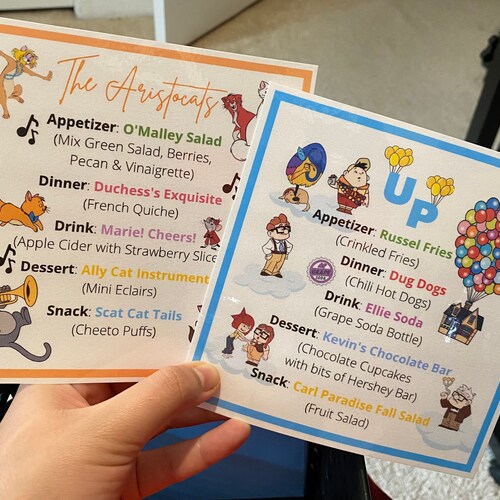 The Aristocats
Appetizer: O'Malley Salad
(Mix Green Salad, Berries,
Pecan & Vinaigrette)
Dinner: Duchess's Exquisite
(French Quiche)
Drink: Marie! Cheers!
(Apple Cider with Strawberry Slice
Dessert: Ally Cat Instrument
(Mini Eclairs)
Snack: Scat Cat Tails
(Cheeto Puffs)
UP
Appetizer: Russel Fries
(Crinkled Fries)
Dinner: Dug Dogs
(Chili Hot Dogs)
GRAPE
Drink: Ellie Soda
(Grape Soda Bottle)
Dessert: Kevin's Chocolate Bar
(Chocolate Cupcakes
with bits of Hershey Bar)
Snack: Carl Paradise Fall Salad
(Fruit Salad)